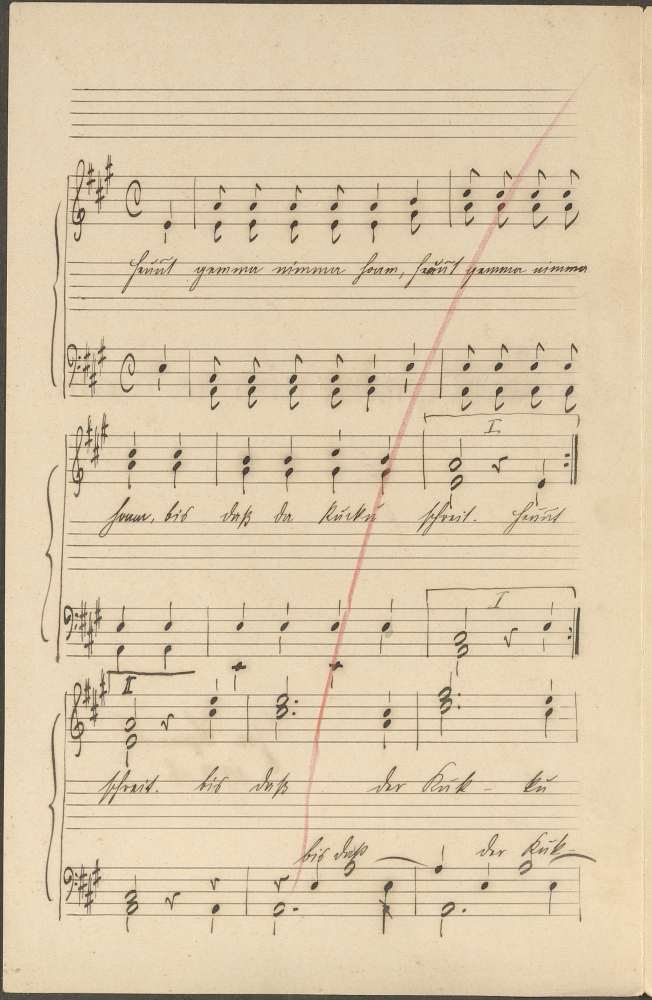 heunt gemma nimma hoam, heunt gemma nimma
I
hoam, bis daß da Kucku schreit. heunt
I
II
schreit. bis daß der Kuk - ku
bis daß der Kuk-